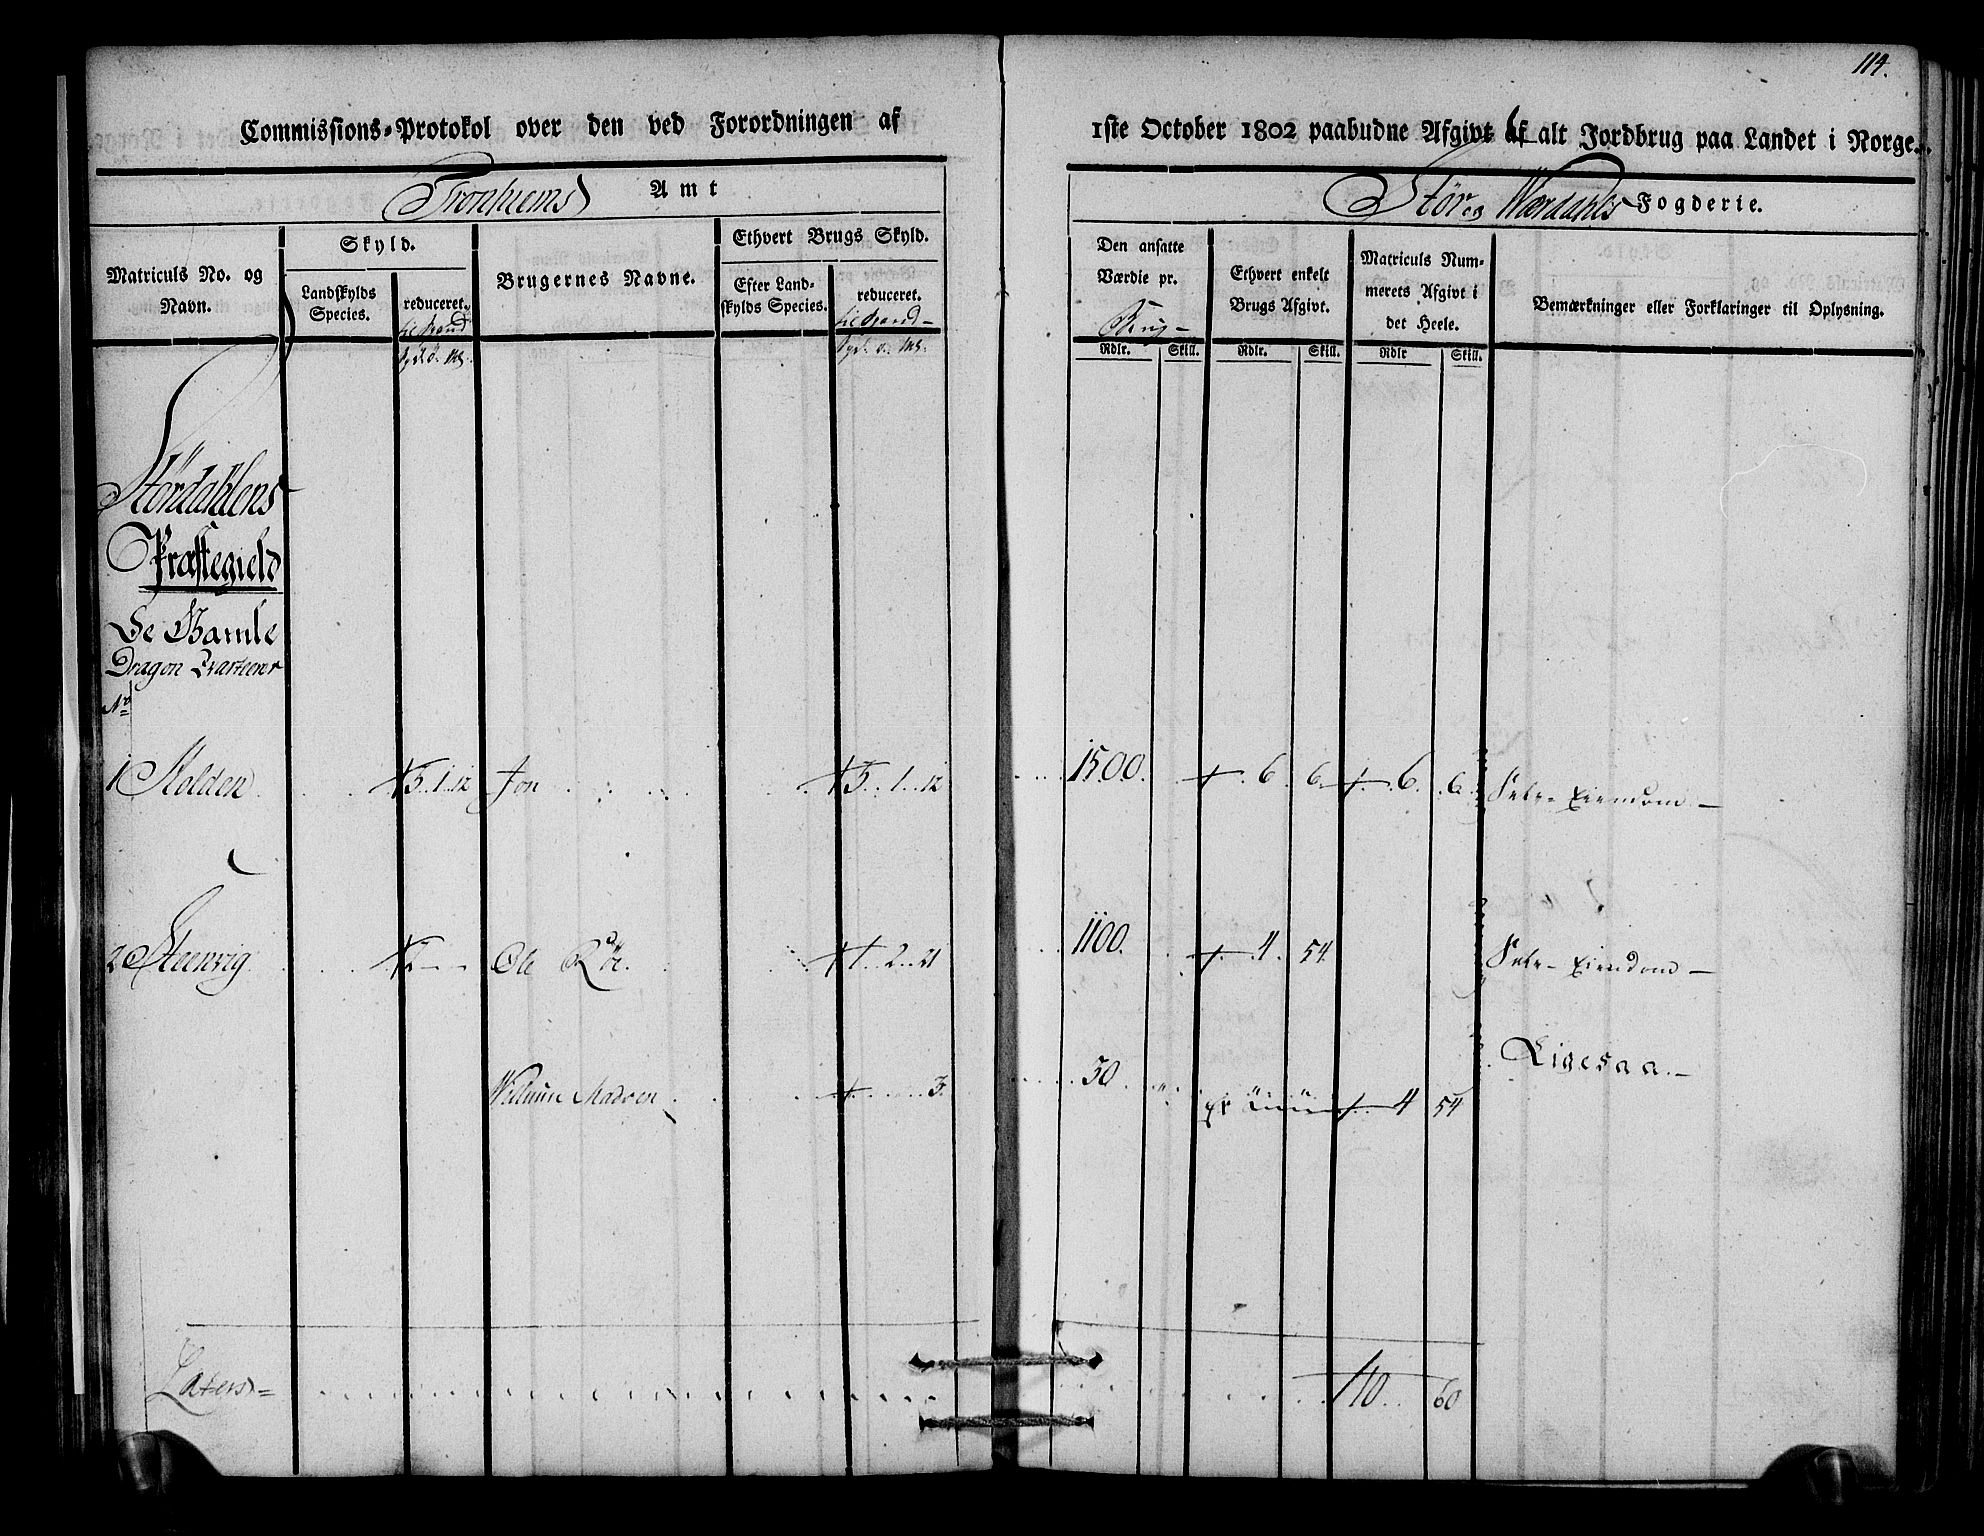 114.
Commissions-Protokol over den ved Forordningen af 1ste October 1802 paabudne Afgivt af alt Jordbrug paa Landet i Norge.
Tronhiems Amt
Stør og Wærdahls Fogderie.
Matriculs No. og Navn.
Skyld.
Landskylds Species.
reduceret
Brugernes Navne.
Ethvert Brugs Skyld.
Efter Landskylds Species.
reduceret.
Den ansatte Værdie pr. Brug
Ethvert enkelt Brugs Afgivt.
Matriculs Nummerets Afgivt i det Heele.
Bemærkninger eller Forklaringer til Oplysning.
Rdlr. Skill. Rdlr. Skill. Rdlr Skill.
Størdahlens
Præstegield
De Gamle
Dragon Qvarteerer
No
1 Holden 3..1..12 Jon 3..1..12 1500. 6 6 6 6 Selv-Eiendom
2 Steenvig 2 Ole Rør 1..2..21 1100. 4 54 Selv-Eiendom
Madsen 3. 50 4 54 Ligesaa.
Laters 10 60